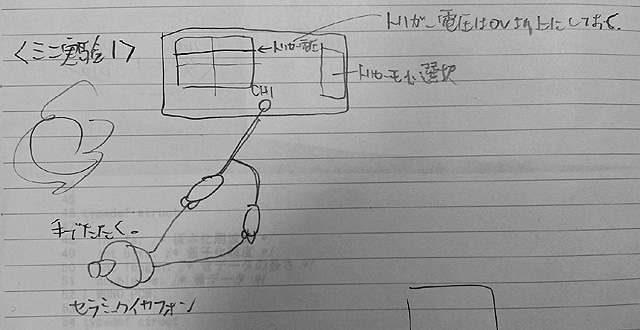 トリガー電圧は0Vより上にしておく。
<ミニ実験1>
←トリガー電圧
トリガーモード選択
CH1
手でたたく。
セラミックイヤフォン